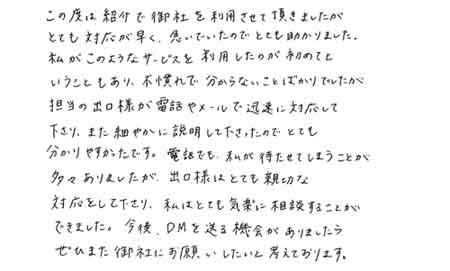 この度は紹介で御社を利用させて頂きましたが
とても対応が早く、急いでいたのでとても助かりました。
私がこのようなサービスを利用したのが初めてと
いうこともあり、不慣れで分からないことばかりでしたが
担当の出口様が電話やメールで迅速に対応して
下さり、また細やかに説明して下さったのでとても
分かりやすかったです。電話でも、私が待たせてしまうことが
多々ありましたが、出口様はとても親切な
対応をして下さり、私はとても気楽に相談することが
できました。今後、DMを送る機会がありましたら
ぜひまた御社にお願いしたいと考えております。